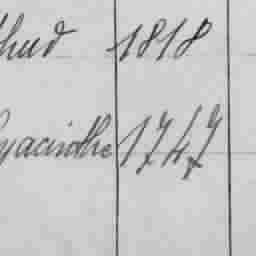 1818
yacinthe 1747